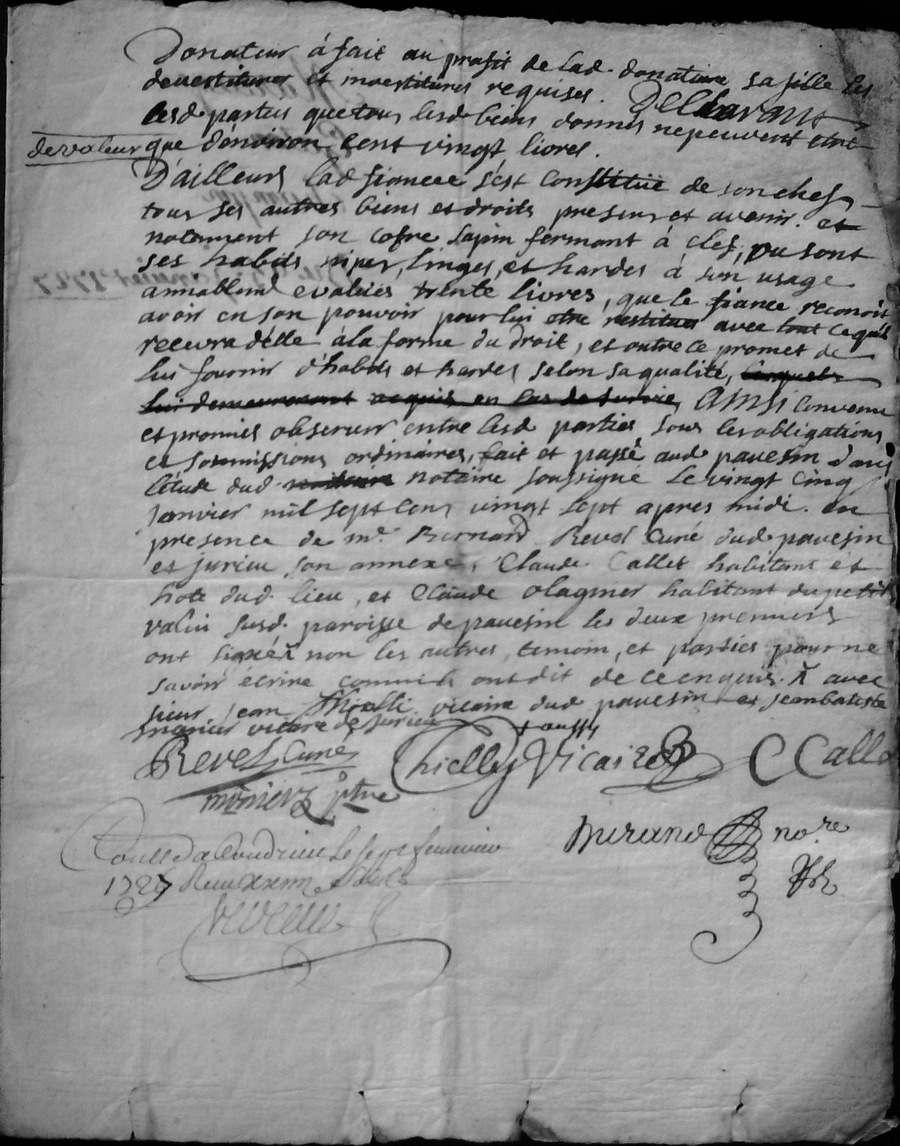 Donateur à fait au profit de lad. donataire sa fille les
devestitures et investitures requises. Declarant
lesd parties que tous lesd biens donnés ne peuvent etre
de valeur que d'environ cent vingt livres.
D'ailleurs lad fiancee s'est constitué de son chef
tous ses autres biens et droits presens et avenir. et
notament son cofre sapin fermant à clef, ou sont
ses habits nipes, linges, et hardes à son usage
annablem evalués trente livres, que le fiancé reconoit
avoir en son pouvoir pour lui etre restitués avec tout ce quil
recevra d'elle à la forme du droit, et outre ce promet de
lui fournir d'habits et hardes selon sa qualité, lesquels
lui demeureront acquis en cas de survie, Ainsi convenu
et promis observer entre lesd parties sous les obligations
et soumissions ordinaires, fait et passé aud pavesin dans
l'étude dud notaire soussigné le vingt cinq
janvier mil sept cens vingt sept apres midi. en
presence de mr. Bernard Revol curé dud pavesin
et jurieu son annexe, Claude Callet habitant et
hote dud. lieu, et Claude olagnier habitant du petit
valin susd. paroisse de pavesin les deux premiers
ont signé x non les autres, temoin, et parties pour ne
savoir ecrire comme ils ont dit de ce enquis. x avec
sieur jean Thielly vicaire dud pavesin et jeanbatiste
monier vicaire de jurieu
+ aussy
Revol Curé Thielly Vicaire C Callet
monier ptre
Durand nore
Coutlé a Condrieu le sept fevrier
1727 Receu